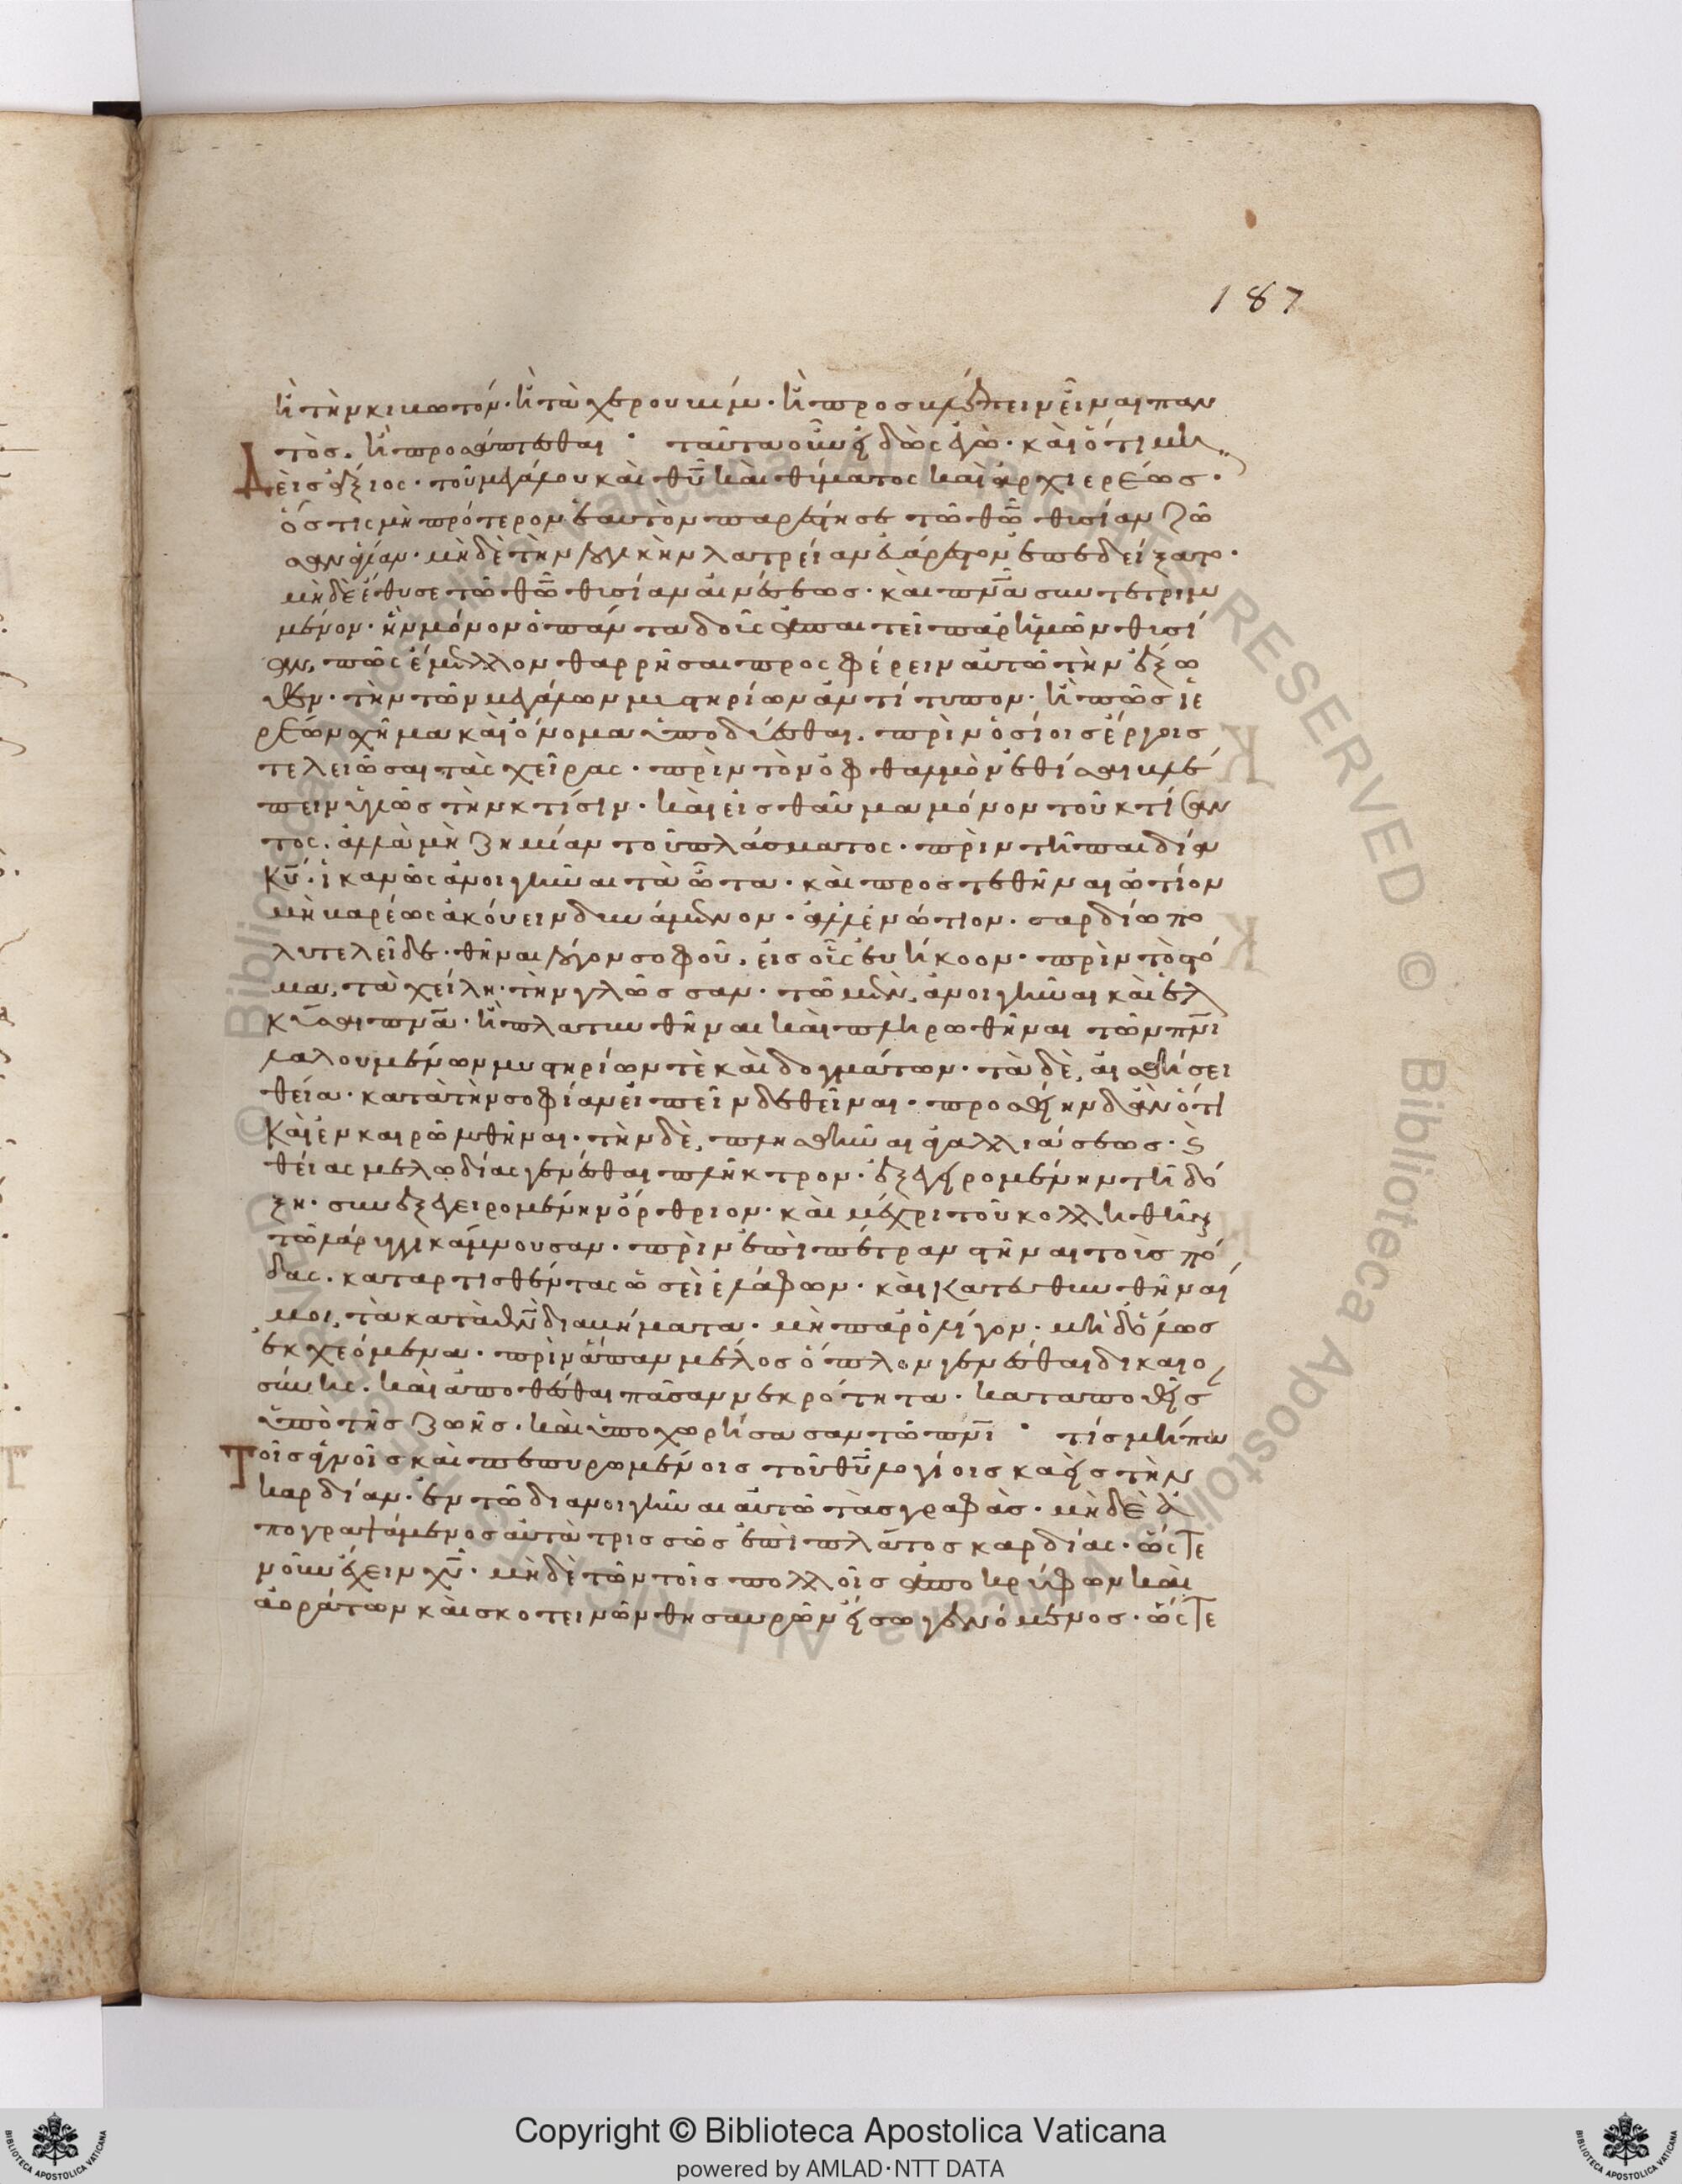 187
κ(αὶ) τὴν κιβωτόν· κ(αὶ) τὰ χερουβίμ· κ(αὶ) προσκόπτειν εἶναι παν
τὸς· κ(αὶ) προσάπτεσθαι· ταῦτα οὖν εἰδὼς ἐγὼ· καὶ ὅτι μη
δεὶς ἄξιος· τοῦ μεγάλου καὶ θῦ καὶ θύματος καὶ ἀρχιερέως·
ὅστις μὴ πρότερον ἑαυτὸν παρέστησε τῶ θῶ θυσίαν ζῶ
σαν ἁγίαν· μηδὲ τὴν λογικὴν λατρείαν εὐάρεστον ἐπεδείξατο·
μηδὲ ἔθυσε τῶ θῶ θυσίαν αἰνέσεως· καὶ πνᾶ συντετριμ
μένον· ἣν μόνον ὁ πάντα δοὺς ἀπαιτεῖ παρ' ἡμῶν θυσί
αν, πῶς ἔμελλον θαρρῆσαι προσφέρειν αὐτῶ τὴν ἔξω
θεν· τὴν τῶν μεγάλων μυστηρίων ἀντίτυπον· κ(αὶ) πῶς ἱε
ρέως σχῆμα καὶ ὄνομα ὑποδύεσθαι· πρὶν ὁσίοις ἔργοις
τελειῶσαι τὰς χεῖρας· πρὶν τὸν ὀφθαλμὸν ἐθίσαι βλέ
πειν ὑγιῶς τὴν κτίσιν· καὶ εἰς θαῦμα μόνον τοῦ κτίσαν
τος· ἀλλὰ μὴ ζημίαν τοῦ πλάσματος· πρὶν τῆ παιδεία
κῦ· ἱκανῶς ἀνοιγῆναι τὰ ὦτα· καὶ προστεθῆναι ὠτίον
μὴ βαρέως ἀκούειν δυνάμενον· ἀλλ' ἐνώτιον· σαρδίω πο
λυτελεῖ δε·θῆναι λόγον σοφοῦ· εἰς οὖς εὐήκοον· πρὶν τὸ στό
μα, τὰ χείλη· τὴν γλῶσσαν· τῶ μὲν, ἀνοιγῆναι καὶ ἑλ
κῦσαι πνᾶ· κ(αὶ) πλατυνθῆναι καὶ πληρωθῆναι τῶν πνι
λαλουμένων μυστηρίων τὲ καὶ δογμάτων· τὰ δὲ, αἰσθήσει
θεία· κατὰ τὴν σοφίαν εἰπεῖν δεθεῖναι· προσθείην δ' ἂν ὅτι
καὶ ἐν καιρῶ λυθῆναι· τὴν δὲ, πλησθῆναι ἀγαλλιάσεως· κ(αὶ)
θείας μελωδίας γενέσθαι πλῆκτρον· ἐξεγειρομένην τῆ δό
ξη· συνεξεγειρομένην ὄρθριον· καὶ μέχρι τοῦ κολληθῆναι
τῶ λάρυγγι κάμνουσαν· πρὶν ἐπὶ πέτραν στῆναι τοὺς πό
δας· καταρτισθέντας ὡσεὶ ἐλάφων· καὶ κατευθυνθῆναί
μοι, τὰ κατὰ θν διαβήματα· μὴ παρ' ὀλίγον· μηδ' ὅλως
ἐκχεόμενα· πρὶν ἅπαν μέλος ὅπλον γενέσθαι δικαιο
σύνης· καὶ ἀποθέσθαι πᾶσαν νεκρότητα· καταποθεῖσ
ὑπὸ τῆς ζωῆς· καὶ ὑποχωρήσασαν τῶ πνι· τίς μήπω
τοῖς ἁγνοῖς καὶ πεπυρωμένοις τοῦ θῦ λογίοις καεὶς τὴν
καρδίαν· ἐν τῶ διανοιγῆναι αὐτῶ τὰς γραφὰς· μηδὲ ἀ
πογραψάμενος αὐτὰ τρισσῶς ἐπὶ πλάτος καρδίας· ὥστε
νοῦν ἔχειν χῦ· μηδὲ τῶν τοῖς πολλοῖς ἀποκρύφων καὶ
ἀοράτων καὶ σκοτεινῶν θησαυρῶν εἴσω γενόμενος· ὥστε
Copyright © Biblioteca Apostolica Vaticana
powered by AMLAD·NTT DATA